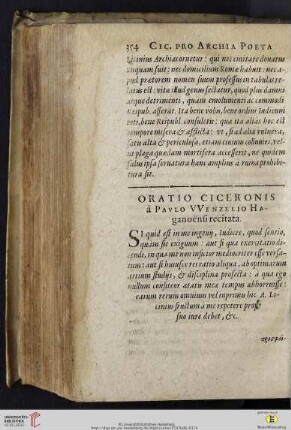 354 CIC. PRO ARCHIA POETA
Licinius Archias ornetur: qui nec civitate donatus
unquam fuit: nec domicilium Romæ habuit: nec a-
pud prætorem nomen suum professus in tabulas re-
latus est: vitæ illud genus sectatur, quod plus damni
atque detrimenti, quam emolumenti ac commodi
Reipub. afferat. Ita bene vobis, bene ordini
bene Reipubl. consuletis: quæ ita alias hoc est
tempore misera & afflicta: ut, si ad alia vulnera,
satis alta & periculosa, etiam convicii,
vel plaga quædam mortifera accesserit, ne quidem
salus ipsa servatura hanc amplius a ruina prohibi-
tura sit.
ORATIO CICERONIS
á PAVLO VVENZELIO Ha-
ganoënsi recitata.
SI quid est in me ingenij, Iudices, quod sentio,
quam sit exiguum: aut si qua exercitatio di-
cendi, in qua me non inficior mediocriter esse versa-
tum: aut si huiusce rei ratio aliqua, ab optimarum
artium studijs, & disciplina profecta: à qua ego
nullum confiteor ætatis meæ tempus abhorruisse:
earum rerum omnium vel in primis hic A. Li-
cinius fructum à me repetere prope
suo iure debet, &c.